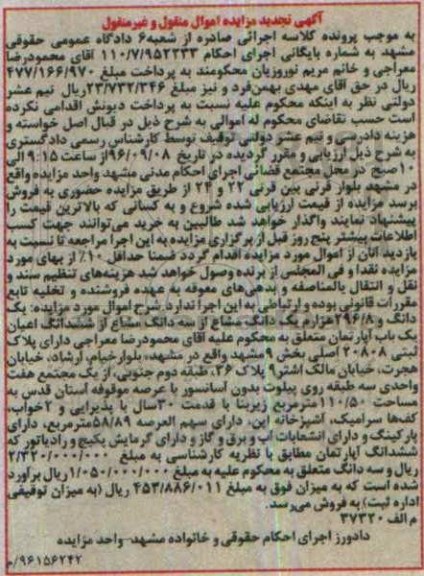 آگهی تجدید مزایده اموال منقول و غیرمنقول
به موجب پرونده کلاسه اجرائی صادره از شعبه۶ دادگاه عمومی حقوقی
مشهد به شماره بایگانی اجرای احکام ۱۱۰/۷/۹۵۲۳۳۳ آقای محمودرضا
معراجی و خانم مریم نوروزیان محکومند به پرداخت مبلغ ۴۷۷/۱۶۶/۹۷۰
ریال در حق آقای مهدی بهمن‌فرد و نیز مبلغ ۲۳/۷۳۲/۳۴۶ریال نیم عشر
دولتی نظر به اینکه محکوم علیه نسبت به پرداخت دیونش اقدامی نکرده
است حسب تقاضای محکوم له اموالی به شرح ذیل در قبال اصل خواسته و
هزینه دادرسی و نیم عشر دولتی توقیف توسط کارشناس رسمی دادگستری
به شرح ذیل ارزیابی و مقرر گردیده در تاریخ ۹۶/۰۹/۰۸از ساعت ۹:۱۵ الی
۱۰صبح در محل مجتمع قضائی اجرای احکام مدنی مشهد واحد مزایده واقع
در مشهد بلوار قرنی بین قرنی ۲۲ و ۲۴ از طریق مزایده حضوری به فروش
برسد مزایده از قیمت ارزیابی شده شروع و به کسانی که بالاترین قیمت را
پیشنهاد نمایند واگذار خواهد شد طالبین به خرید می‌توانند جهت کسب
اطلاعات بیشتر پنج روز قبل از برگزاری مزایده به این اجرا مراجعه تا نسبت به
بازدید آنان از اموال مورد مزایده اقدام گردد ضمنا حداقل ۱۰٪ از بهای مورد
مزایده نقدا و فی المجلس از برنده وصول خواهد شد هزینه‌های تنظیم سند و
نقل و انتقال بالمناصفه و بدهی‌های معوقه به عهده فروشنده و تخلیه تابع
مقررات قانونی بوده و ارتباطی به این اجرا ندارد. شرح اموال مورد مزایده: یک
دانگ و ۲۹۶/۸هزارم یک دانگ مشاع از سه دانگ مشاع از ششدانگ اعیان
یک باب آپارتمان متعلق به محکوم علیه آقای محمودرضا معراجی دارای پلاک
ثبتی ۲۰۸۰۸ اصلی بخش ۹مشهد واقع در مشهد، بلوار خیام، ارشاد، خیابان
هجرت، خیابان مالک اشتر۹ پلاک ۲۶، طبقه دوم جنوبی، از یک مجتمع هفت
واحدی سه طبقه روی پیلوت بدون آسانسور با عرصه موقوفه آستان قدس به
مساحت ۱۱۰/۵۰مترمربع زیربنا با قدمت ۳۰سال با پذیرایی و ۲خواب،
کف‌ها سرامیک، آشپزخانه اپن، دارای سهم العرصه ۵۸/۸۹مترمربع، دارای
پارکینگ و دارای انشعابات آب و برق و گاز و دارای گرمایش پکیج و رادیاتور که
ششدانگ آپارتمان مطابق با نظریه کارشناسی به مبلغ ۲/۳۲۰/۰۰۰/۰۰۰
ریال و سه دانگ متعلق به محکوم علیه به مبلغ ۱/۰۵۰/۰۰۰/۰۰۰ریال برآورد
شده است که به میزان فوق به مبلغ ۴۵۳/۸۸۶/۰۱۱ ریال (به میزان توقیفی
اداره ثبت) به فروش می‌رسد.
م الف ۳۷۳۲۰
دادورز اجرای احکام حقوقی و خانواده مشهد-واحد مزایده
۹۶۱۵۶۲۴۲/م